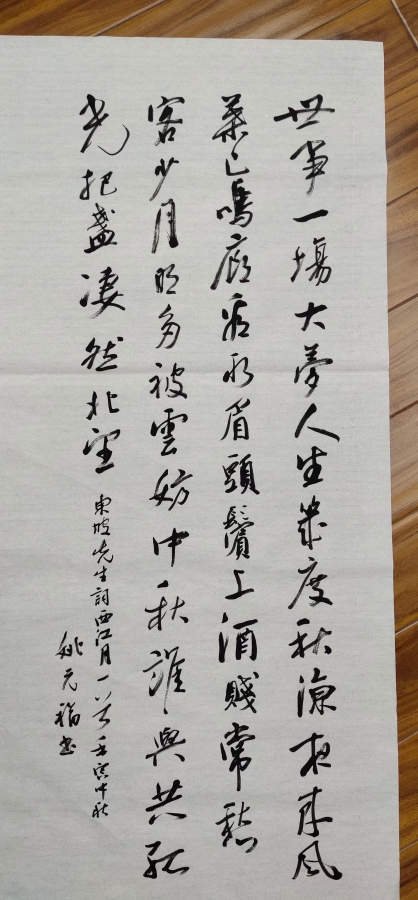 世事一場大夢人生幾度秋涼夜來風
葉已鳴廊看取眉頭鬢上酒賤常愁
客少月明多被雲妨中秋誰與共孤
光把盞凄然北望
東坡先生詞西江月一首壬寅中秋
姚元福書